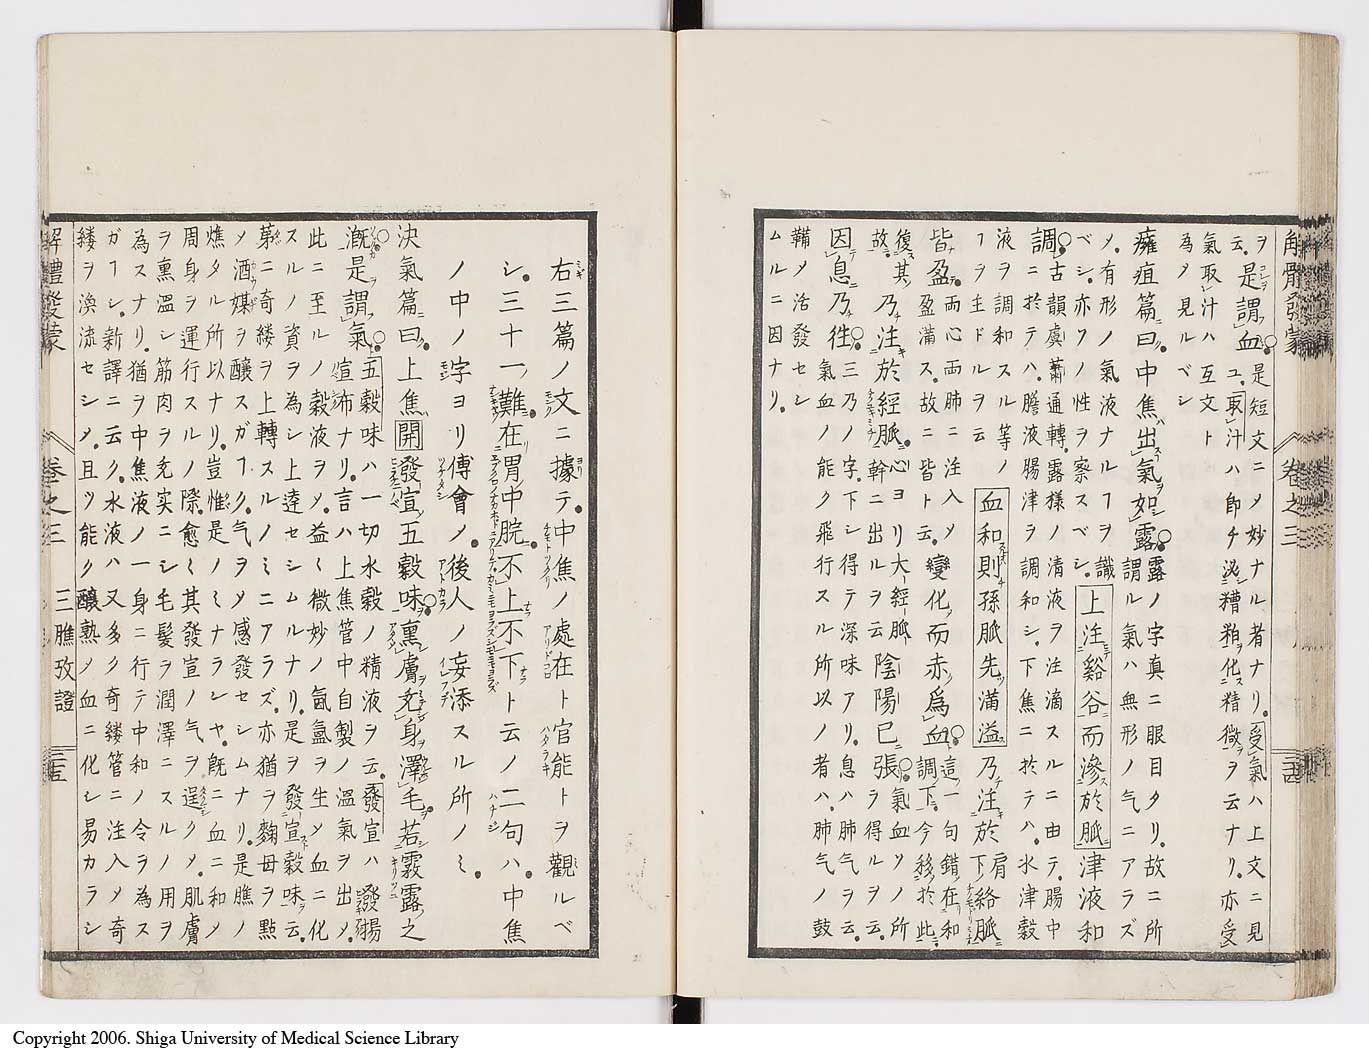 解體發蒙 卷之三 二十四
ヲ是謂血是短文ニメ妙ナル者ナリ受氣ハ上文ニ見
云ユ取汁ハ即チ泌糟粕化精微ヲ云ナリ亦受
氣取汁ハ互文ト
為メ見ルベシ
癰疽篇曰中焦出氣如露露ノ字真ニ眼目タリ故ニ所
謂ル氣ハ無形ノ气ニアラズ
ノ有形ノ氣液ナルヿヲ識
ベシ亦クノ性ヲ察スベシ上注谿谷而滲於脈津液和
調古韻虞蕭通轉露様ノ清液ヲ注滴スルニ由テ腸中
ニ於テハ膽液腸津ヲ調和シ下焦ニ於テハ水津穀
液ヲ調和スル等ノ
ヿヲ主ドルヲ云血和則孫脈先滿溢乃注於絡脈
皆盈而心而肺ニ注入メ
盈滿ス故ニ皆ト云變化而赤爲血這一句錯在和
調下今移於此
復其
故乃注於經脈心ヨリ大經脈
幹ニ出ルヲ云陰陽已張氣血ソノ所
ヲ得ルヲ云
因息乃徃三乃ノ字下シ得テ深味アリ息ハ肺气ヲ云
氣血ノ能ク飛行スル所以ノ者ハ肺气ノ鼓
鞴メ活發セシ
ムルニ因ナリ
右三篇ノ文ニ據テ中焦ノ處在ト官能トヲ觀ルベ
シ三十一難在胃中脘不上不下ト云ノ二句ハ中焦
ノ中ノ字ヨリ傅會メ後人ノ妄添スル所ノミ
決氣篇曰上焦開發宣五穀味熏膚充身澤毛若霧露之
漑是謂氣五穀味ハ一切水穀ノ精液ヲ云發宣ハ發揚
宣布ナリ言ハ上焦管中自製ノ溫氣ヲ出メ
此ニ至ルノ穀液ヲメ益ミ微妙ノ氤氳ヲ生メ血ニ化
スルノ資ヲ為シ上達セシムルナリ是ヲ發宣穀味云
苐ニ奇縷ヲ上轉スルノミニアラズ亦猶ヲ麴母ヲ點
メ酒媒ヲ釀スガヿク气ヲメ感發セシムナリ是膲ノ
燋タル所以ナリ豈惟是ノミナラレヤ既ニ血ニ和メ
周身ヲ運行スルノ際愈ミ其發宣ノ气ヲ逞クメ肌膚
ヲ熏溫シ筋肉ヲ充実ニシ毛髮ヲ潤澤ニスルノ用ヲ
為スナリ猶ヲ中焦液ノ一身ニ行テ中和ノ令ヲ為ス
ガヿシ新譯ニ云ク水液ハ又多ク奇縷管ニ注入メ奇
縷ヲ渙流セシメ且ツ能ク釀熟メ血ニ化シ易カラシ
解體發蒙 卷之三 三膲攷證 二十五
Copyright 2006. Shiga University of Medical Science Library